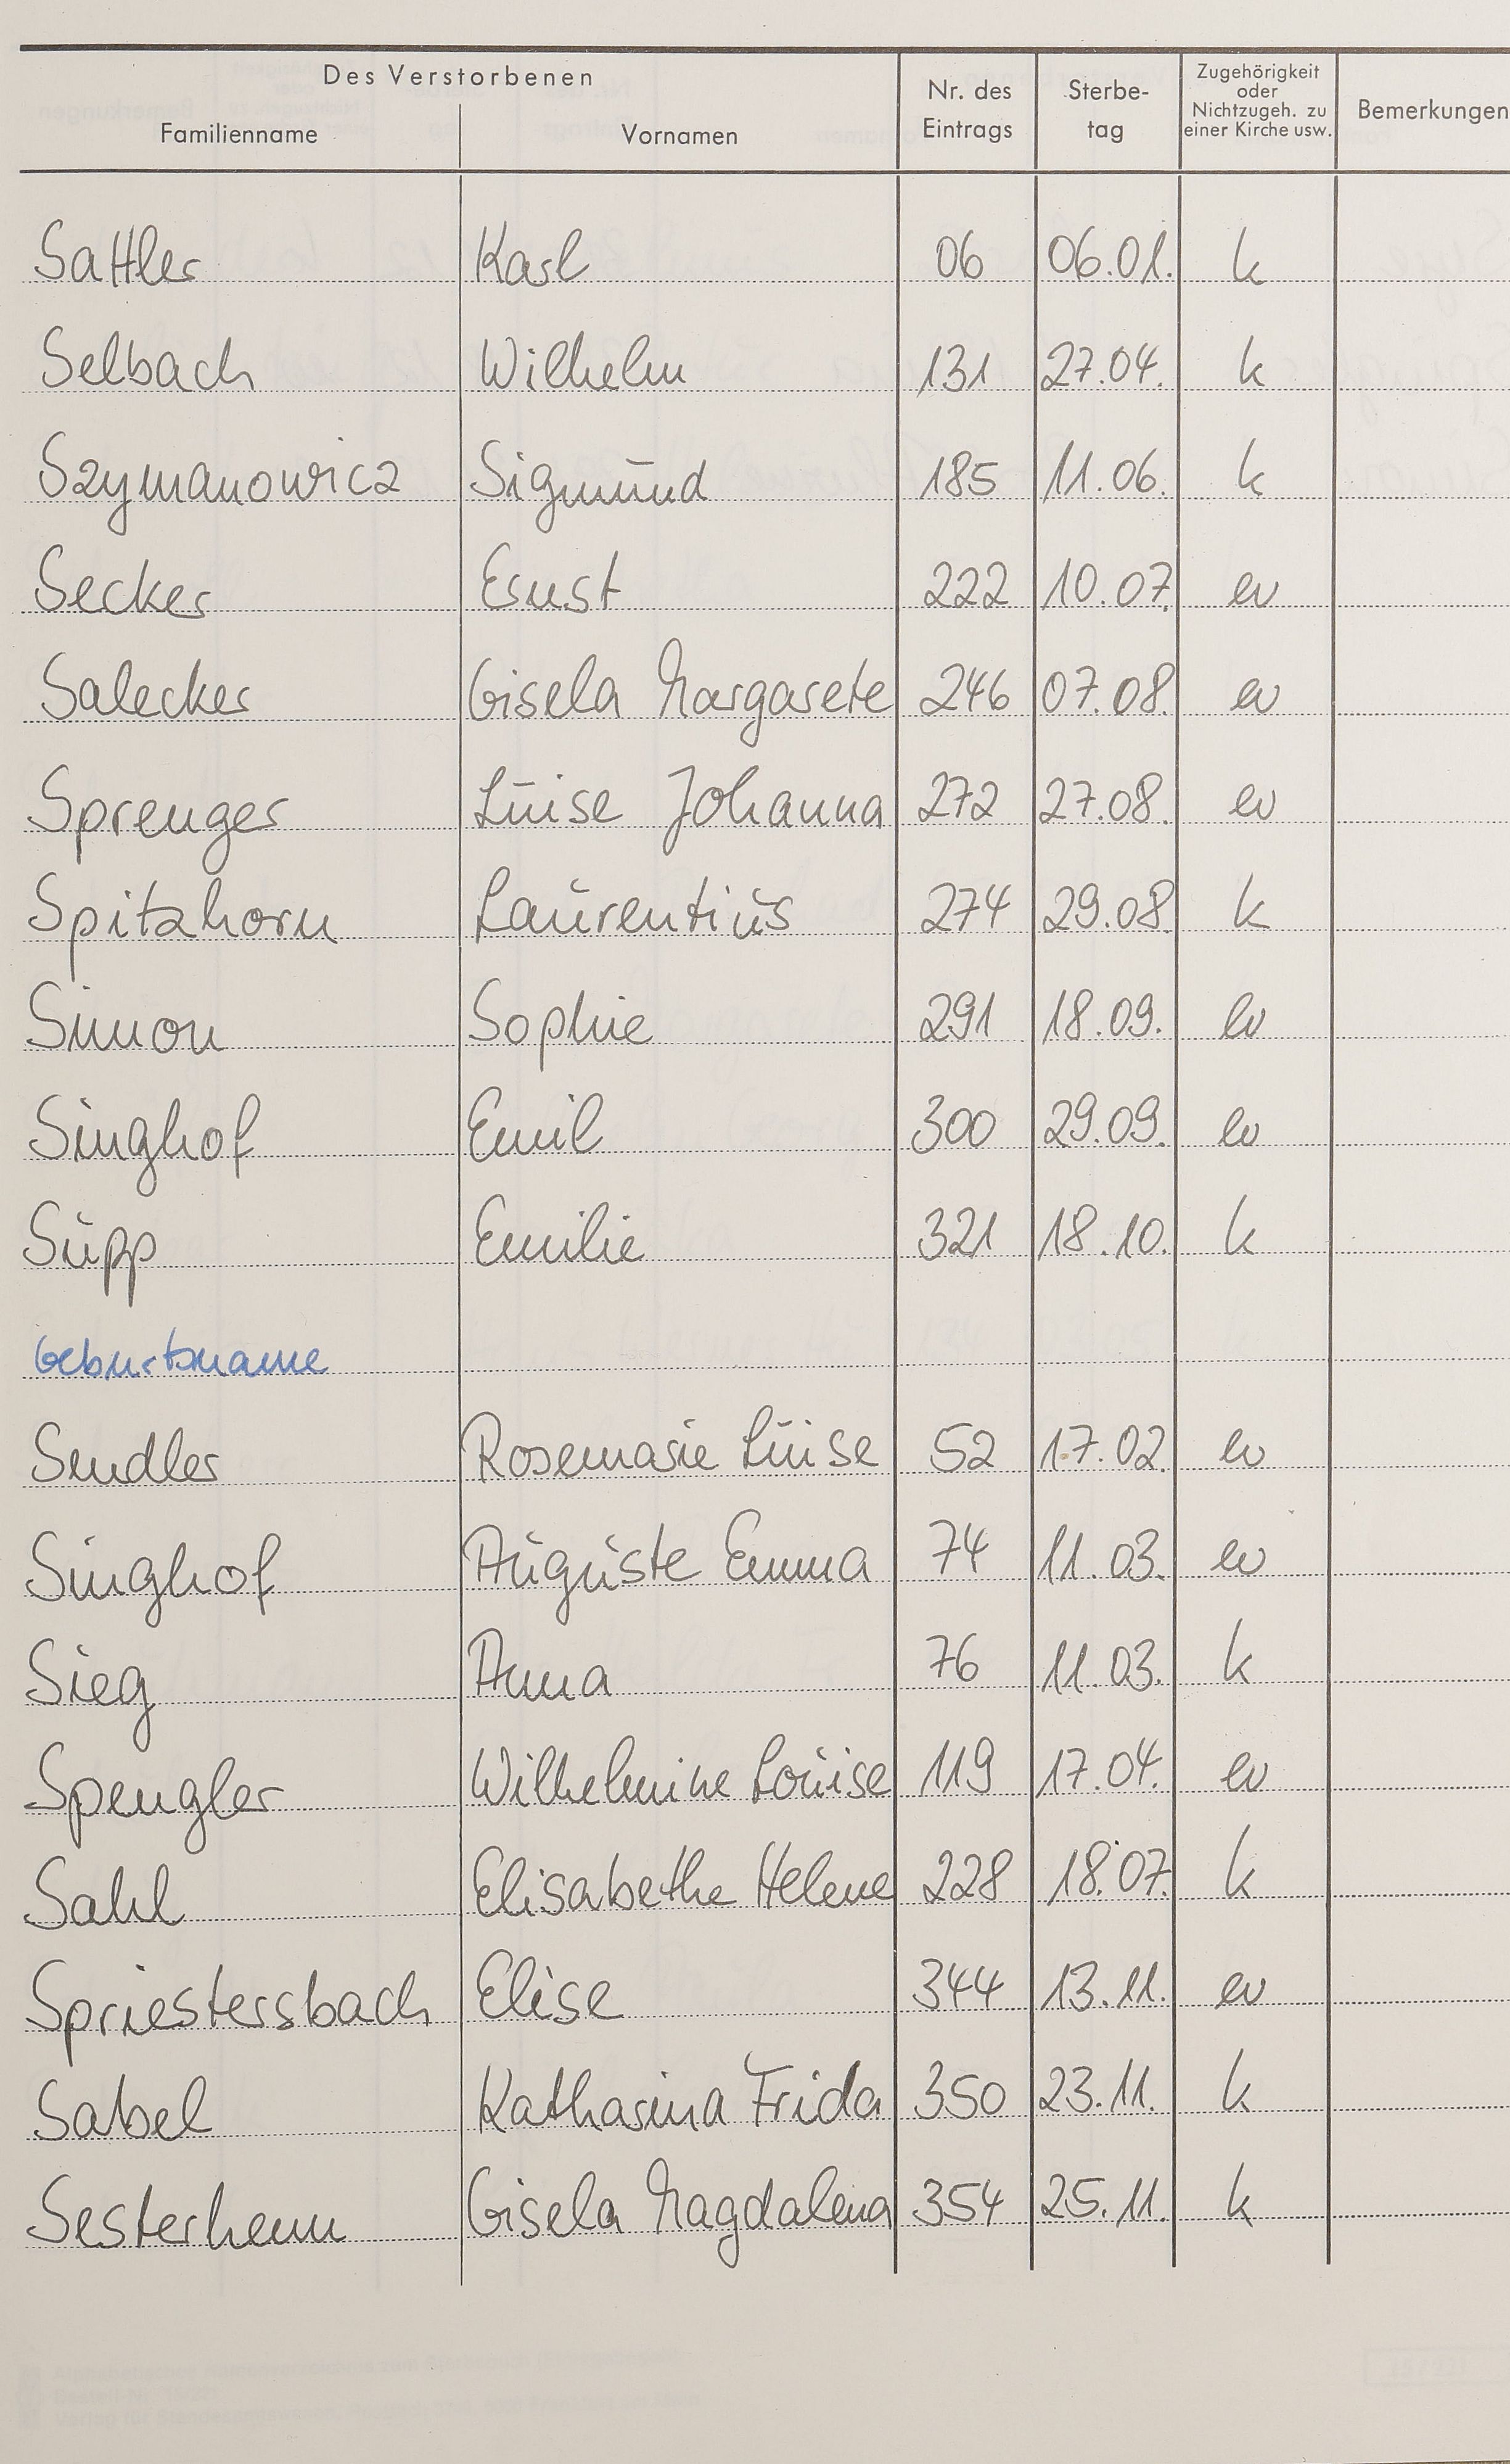 Des Verstorbenen
Familienname Vornamen Nr. des Eintrags Sterbe-tag Zugehörigkeit oder Nichtzugeh. zu einer Kirche usw. Bemerkungen
Sattler Karl 06 06.01. k
Selbach Wilhelm 131 27.04. k
Szymanowicz Sigmund 185 11.06. k
Secker Ernst 222 10.07. ev
Salecker Gisela Margarete 246 07.08. ev
Sprenger Luise Johanna 272 27.08. ev
Spitzhorn Laurentius 274 29.08. k
Simon Sophie 291 18.09. ev
Singhof Emil 300 29.09. ev
Supp Emilie 321 18.10. k
Geburtsname
Sendler Rosemarie Luise 52 17.02. ev
Singhof Auguste Emma 74 11.03. ev
Sieg Anna 76 11.03. k
Spengler Wilhelmine Louise 119 17.04. ev
Sahl Elisabethe Helene 228 18.07. k
Spriestersbach Elise 344 13.11. ev
Sabel Katharina Frida 350 23.11. k
Sesterhenn Gisela Magdalena 354 25.11. k